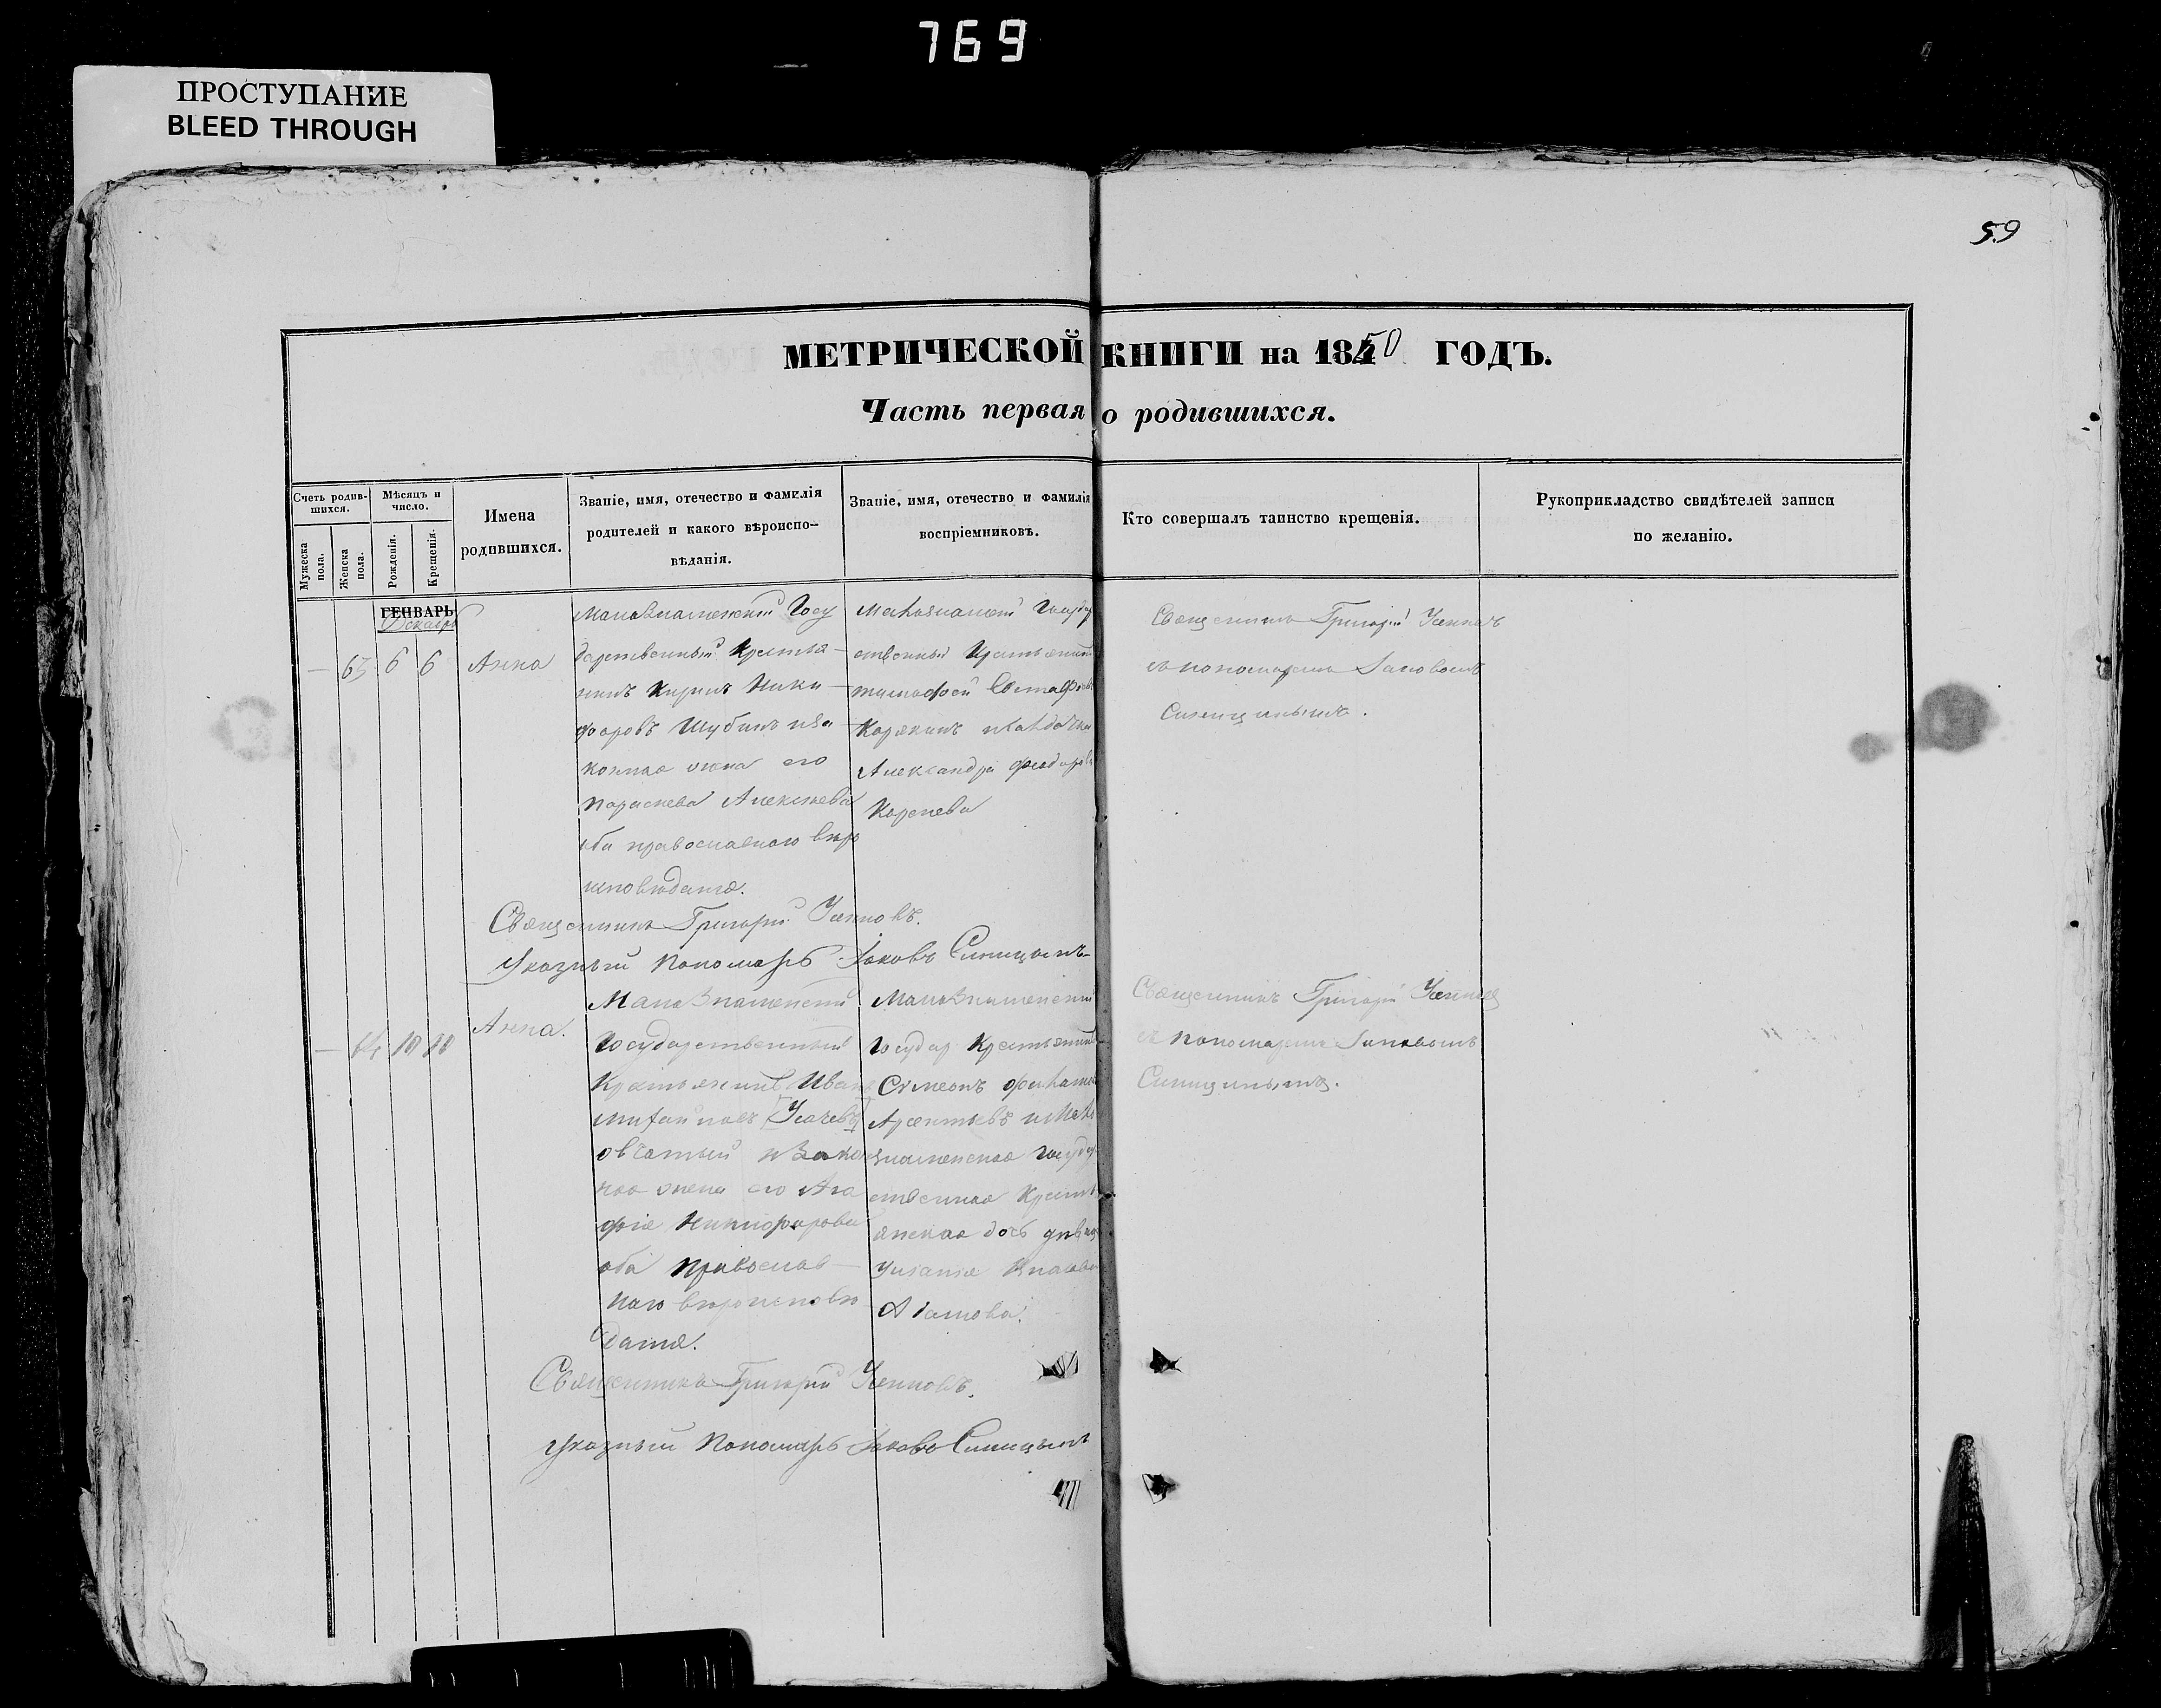 769
ПРОСТУПАНИЕ
BLEED THROUGH
59
МЕТРИЧЕСКОЙ КНИГИ на 1850 ГОДЪ.
Часть первая о родившихся.
Счетъ родив-
шихся.
Мужеска пола.
Женска пола.
Мѣсяцъ и
число.
Рожденія.
Крещенія.
Имена
родившихся.
Званіе, имя, отечество и фамилія
родителей и какого вѣроиспо-
вѣданія.
Званіе, имя, отечество и фамилія
воспріемниковъ.
Кто совершалъ таинство крещенія.
Рукоприкладство свидѣтелей записи
по желанію.
ГЕНВАРЬ
Декабрь
— 63 6 6
Анна
Малознаменскій Госу
дарственный Крестья—
нинъ Кирилъ Ники—
форовъ Шубинъ иза
конная жена его
Параскева Алексеева
оба православного вѣро
исповѣданія.
Крестьянинъ
Корякинъ
Александра Феодорова
Корнева
Священникъ Григорій
съ пономаремъ Іаковомъ
Синицынымъ.
Священникъ Григорій
Указный Пономарь Іаковъ Синицынъ
— 64 10 10
Анна.
Малознаменскій
Государственный
Крестьянинъ Иванъ
Михайловъ
изакон
ная жена его Ага
фія Никифорова
оба Православ—
наго вѣроисповѣ
данія.
Малознаменскій
Государ Крестьянинъ
Сѵмеонъ
Арсентьевъ
знаменская Государ
ственная Крестья
янская дочь девица
Священникъ Григорій
съ Пономаремъ Іаковомъ
Синицынымъ.
Священникъ Григорій
Указный Пономарь Іаковъ Синицынъ